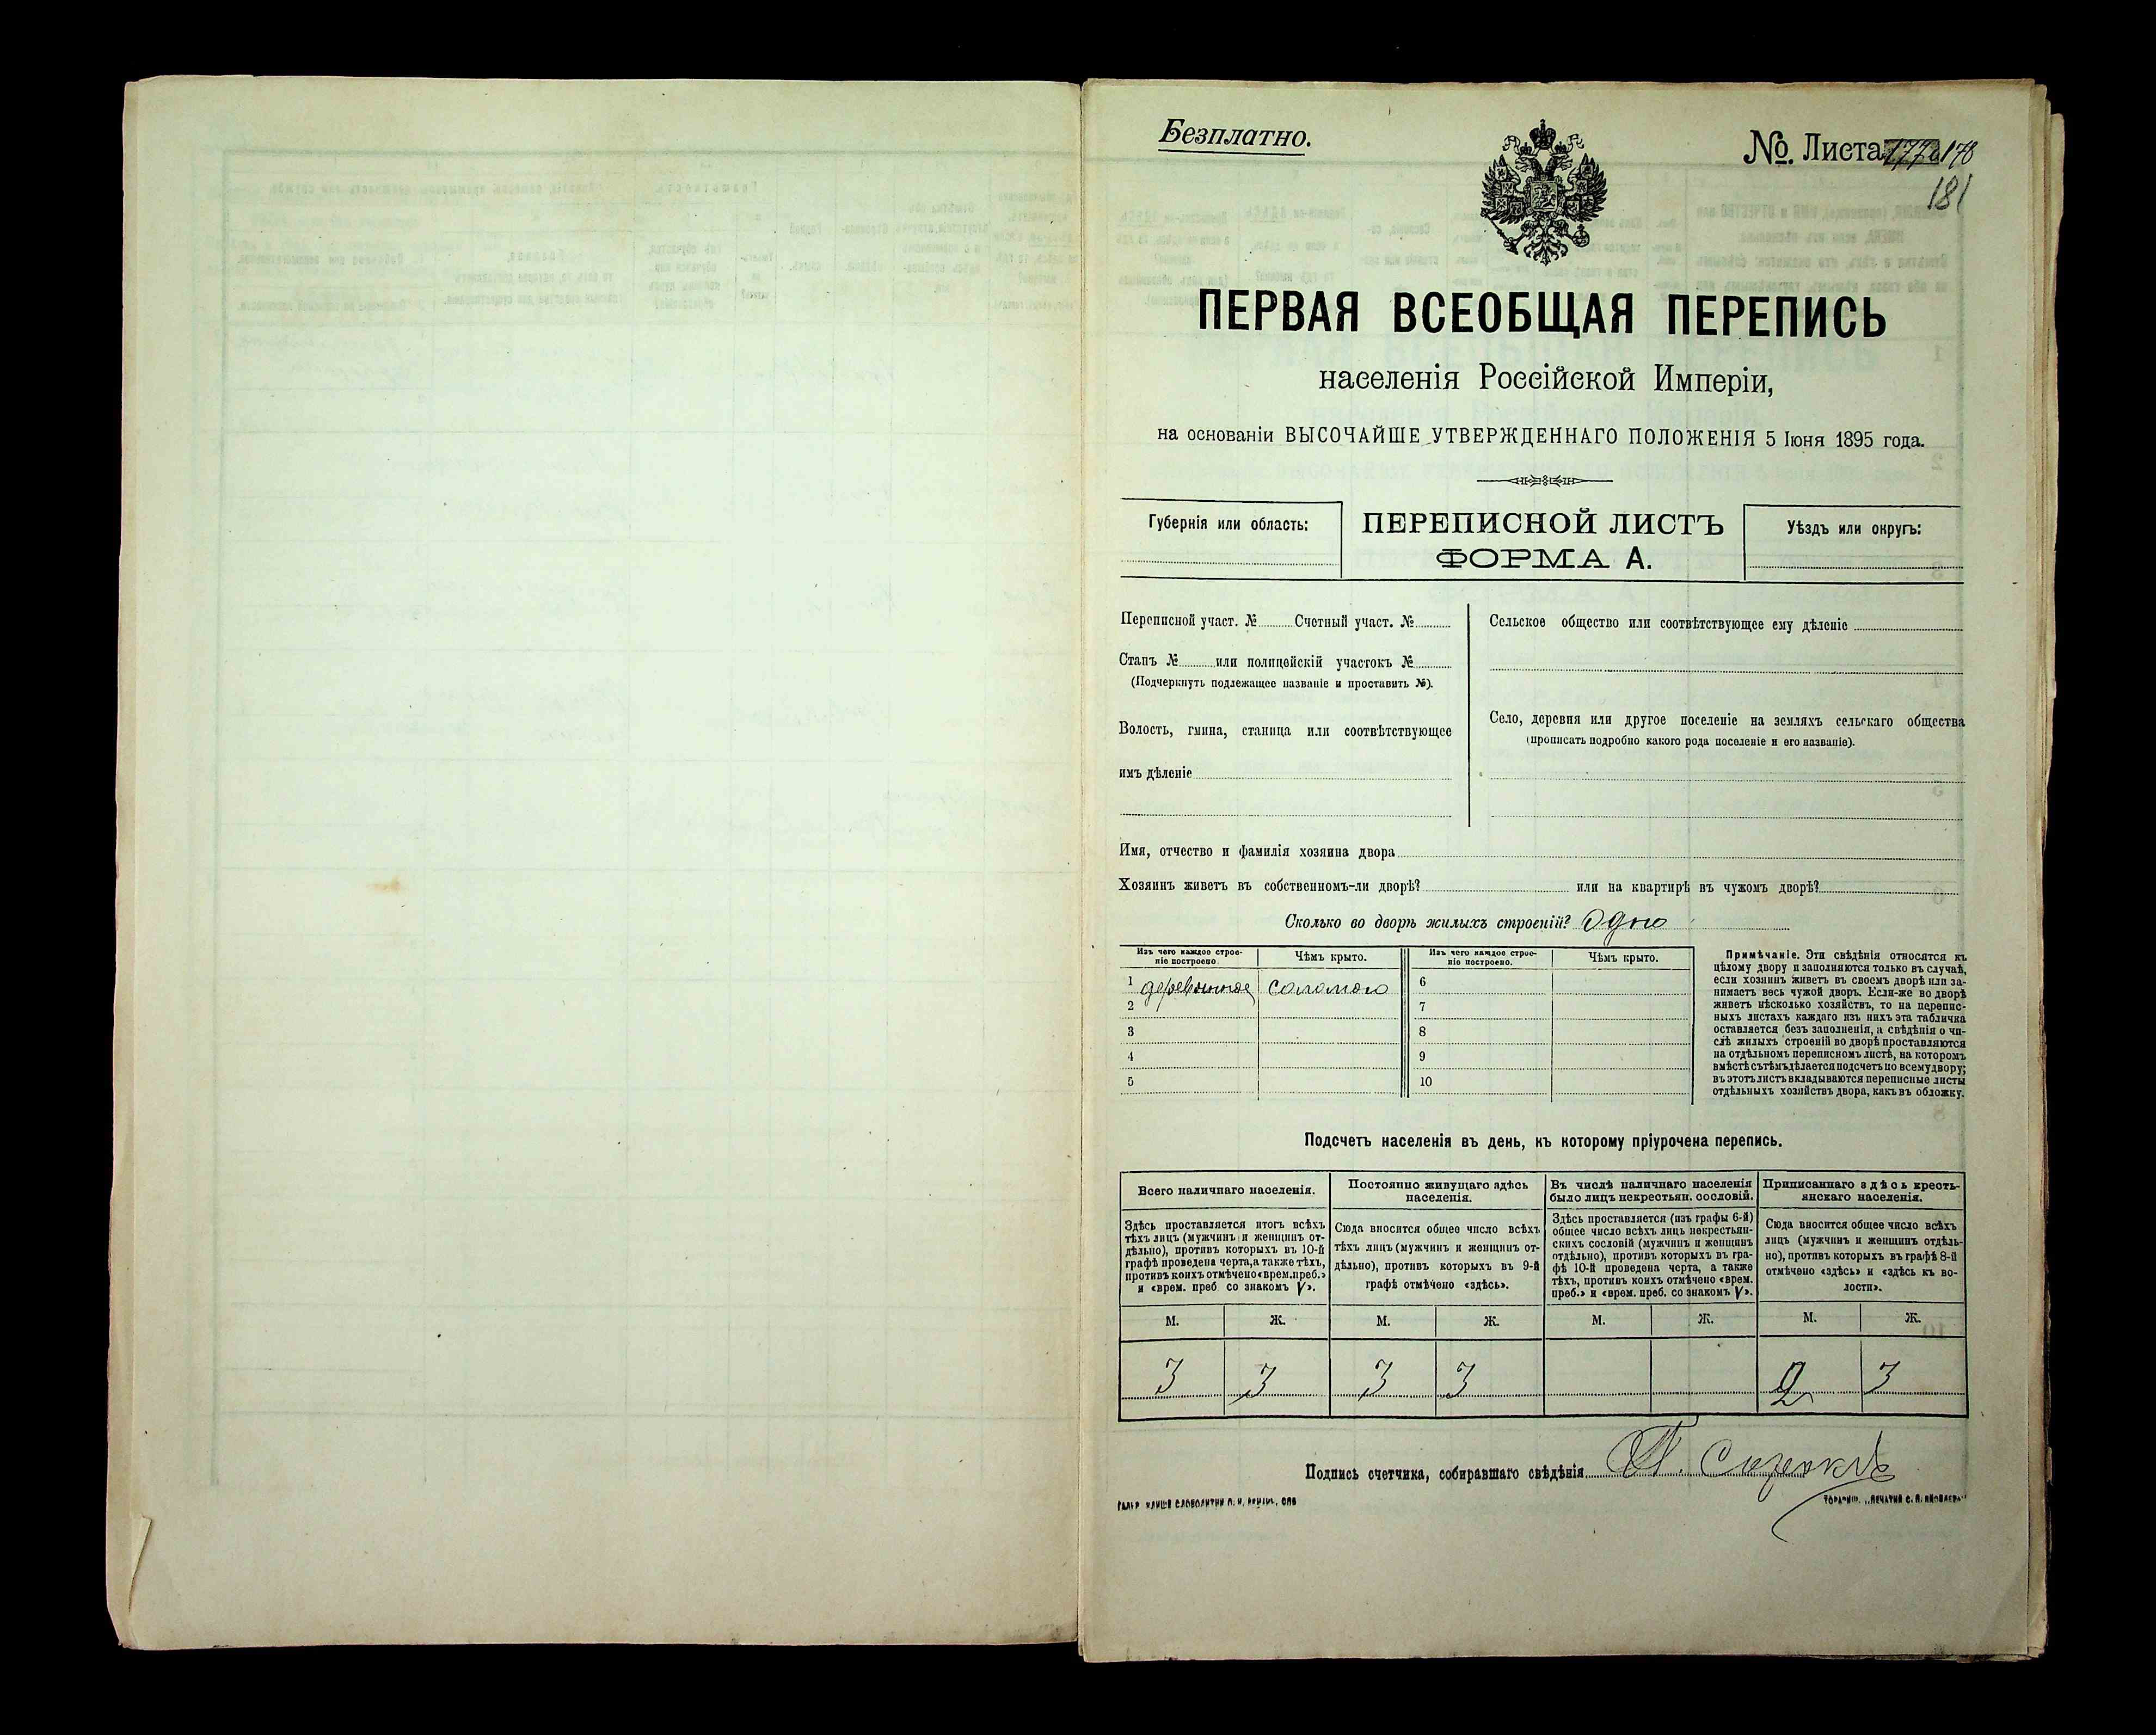 Безплатно.
№. Листа 178
181
ПЕРВАЯ ВСЕОБЩАЯ ПЕРЕПИСЬ
населенія Россійской Имперіи,
на основаніи ВЫСОЧАЙШЕ УТВЕРЖДЕННАГО ПОЛОЖЕНІЯ 5 Іюня 1895 года.
Губернія или область:
ПЕРЕПИСНОЙ ЛИСТЪ
ФОРМА А.
Уѣздъ или округъ:
Переписной участ. № Счетный участ. №
Станъ № или полицейскій участокъ №
(Подчеркнуть подлежащее названіе и проставить №).
Волость, гмина, станица или соотвѣтствующее
имъ дѣленіе
Сельское общество или соотвѣтствующее ему дѣленіе
Село, деревня или другое поселеніе на земляхъ сельскаго общества
(прописать подробно какого рода поселеніе и его названіе).
Имя, отчество и фамилія хозяина двора
Хозяинъ живетъ въ собственномъ-ли дворѣ? или на квартирѣ въ чужомъ дворѣ?
Сколько во дворѣ жилыхъ строеній? Одно
Изъ чего каждое строе-
ніе построено.
Чѣмъ крыто.
Изъ чего каждое строе-
ніе построено.
Чѣмъ крыто.
1 деревянное соломою
2
3
4
5
6
7
8
9
10
Примѣчаніе. Эти свѣдѣнія относятся къ
цѣлому двору и заполняются только въ случаѣ,
если хозяинъ живетъ въ своемъ дворѣ или за-
нимаетъ весь чужой дворъ. Если-же во дворѣ
живетъ нѣсколько хозяйствъ, то на перепис-
ныхъ листахъ каждаго изъ нихъ эта табличка
оставляется безъ заполненія, а свѣдѣнія о чи-
слѣ жилыхъ строеній во дворѣ проставляются
на отдѣльномъ переписномъ листѣ, на которомъ
вмѣстѣ съ тѣмъ дѣлается подсчетъ по всему двору;
въ этотъ листъ вкладываются переписные листы
отдѣльныхъ хозяйствъ двора, какъ въ обложку.
Подсчетъ населенія въ день, къ которому пріурочена перепись.
Всего наличнаго населенія.
Здѣсь проставляется итогъ всѣхъ
тѣхъ лицъ (мужчинъ и женщинъ от-
дѣльно), противъ которыхъ въ 10-й
графѣ проведена черта, а также тѣхъ,
противъ коихъ отмѣчено «врем. преб.»
и «врем. преб. со знакомъ V».
Постоянно живущаго здѣсь
населенія.
Сюда вносится общее число всѣхъ
тѣхъ лицъ (мужчинъ и женщинъ от-
дѣльно), противъ которыхъ въ 9-й
графѣ отмѣчено «здѣсь».
Въ числѣ наличнаго населенія
было лицъ некрестьян. сословій.
Здѣсь проставляется (изъ графы 6-й)
общее число всѣхъ лицъ некрестьян-
скихъ сословій (мужчинъ и женщинъ
отдѣльно), противъ которыхъ въ гра-
фѣ 10-й проведена черта, а также
тѣхъ, противъ коихъ отмѣчено «врем.
преб.» и «врем. преб. со знакомъ V».
Приписаннаго здѣсь кресть-
янскаго населенія.
Сюда вносится общее число всѣхъ
лицъ (мужчинъ и женщинъ отдѣль-
но), противъ которыхъ въ графѣ 8-й
отмѣчено «здѣсь» и «здѣсь къ во-
лости».
М. Ж. М. Ж. М. Ж. М. Ж.
3 3 3 3 2 3
Подпись счетчика, собиравшаго свѣдѣнія